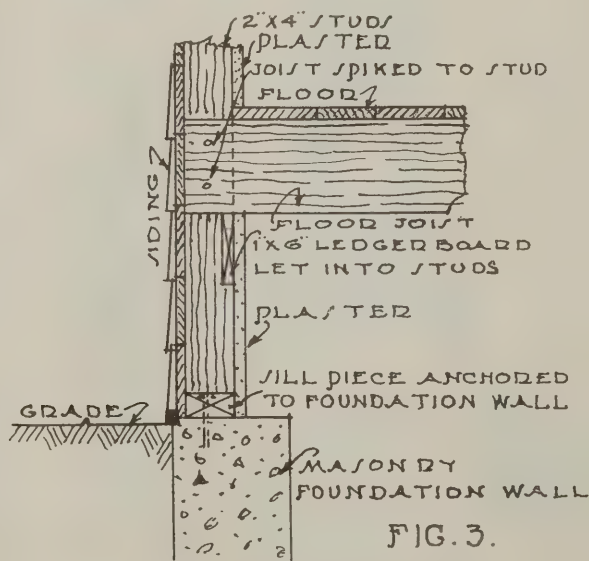 2"X4" STUDS
PLASTER
JOIST SPIKED TO STUD
FLOOR
SIDING
FLOOR JOIST
1"X6" LEDGER BOARD
LET INTO STUDS
PLASTER
SILL PIECE ANCHORED
TO FOUNDATION WALL
GRADE
MASONRY
FOUNDATION WALL
FIG. 3.